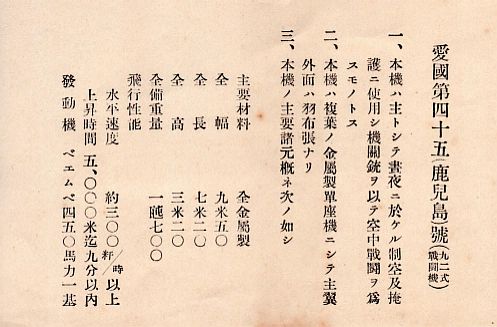 愛國第四十五(鹿兒島)號(九二式戰鬪機)
一、本機ハ主トシテ晝夜ニ於ケル制空及掩
護ニ使用シ機關銃ヲ以テ空中戰鬪ヲ爲
スモノトス
二、本機ハ複葉ノ金屬製單座機ニシテ主翼
外面ハ羽布張ナリ
三、本機ノ主要諸元概ネ次ノ如シ
主要材料 全金屬製
全幅 九米五〇
全長 七米二〇
全高 三米二〇
全備重量 一瓲七〇〇
飛行性能
水平速度 約三〇〇粁/時以上
上昇時間 五、〇〇〇米迄九分以內
發動機 ベエムベ四五〇馬力一基